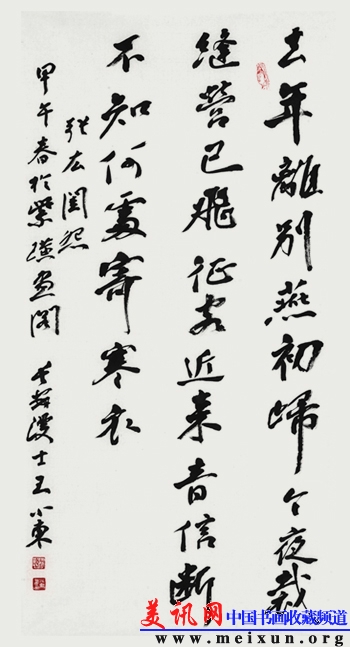 去年離別燕初歸今夜裁
縫營已飛征客近来音信断
不知何處寄寒衣
闺怨
甲午春於紫 画阁 漫士王小東
美讯网 中国书画收藏频道
www.meixun.org